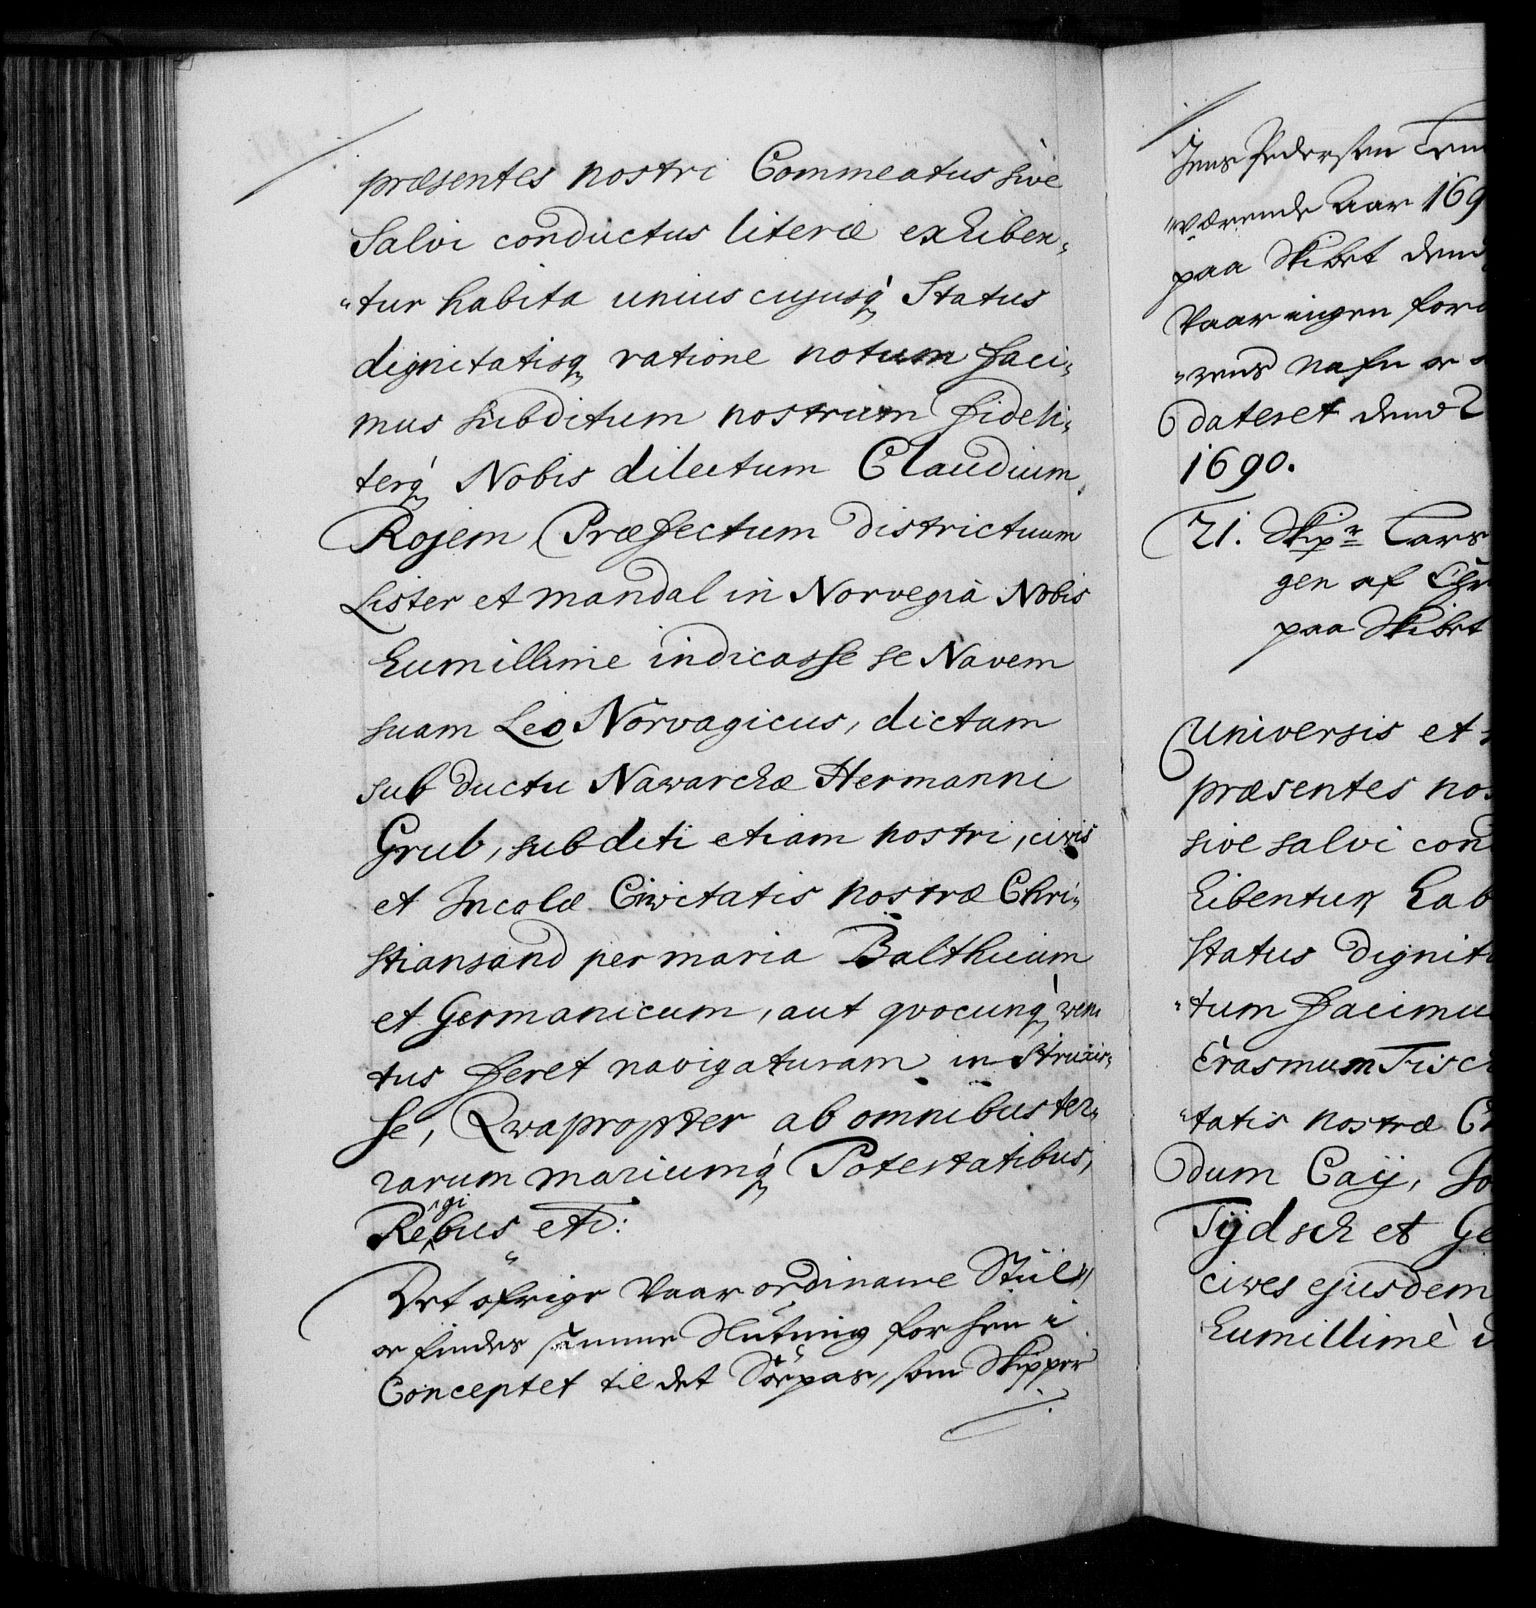 præsentes nostri Commeatus sive
Salvi conductus literæ exhiben„
„tur habita unius cujusq́ Status
dignitatisq ratione notum faci„
mus subditum nostrum fideli„
terq́ Nobis dilectum Claudium
Rojem Præfectum districtuum
Lister et mandal in Norvegia Nobis
humillime indicasse se Navem
suam Leo Norvagicus, dictam
sub ductu Nawarchæ Hermanni
Grub, subditi etiam nostri, civis
et Incolæ Civitatis nostræ Chri„
stiansand per maria Balthicum
et Germanicum, aut qvocunq́ ven
tus feret navigaturam instruxis„
se, Qvapropter ab omnibus ter„
rarum mariumq́ Potestatibus,
Regibus etc:
Det øfrige Vaar ordinaire Stiil
er findes samme Slutning forhen i
Conceptet til det Söepas, som Skipper
Jens Pedersen
„værende Aar 169
paa Skibet
Vaar ingen
„rens nafn er
dateret
1690.
21. Skipr Lars
gen af Chr
paa Skibet
Universis et
præsentes nos
sive salvi con
hibentur hab
Status dignit
„tum facimu
Erasmum Fisc
„tatis nostræ Ch
dum Caij, Jo
Tÿdsch et Ge
cives ejusdem
humillimè